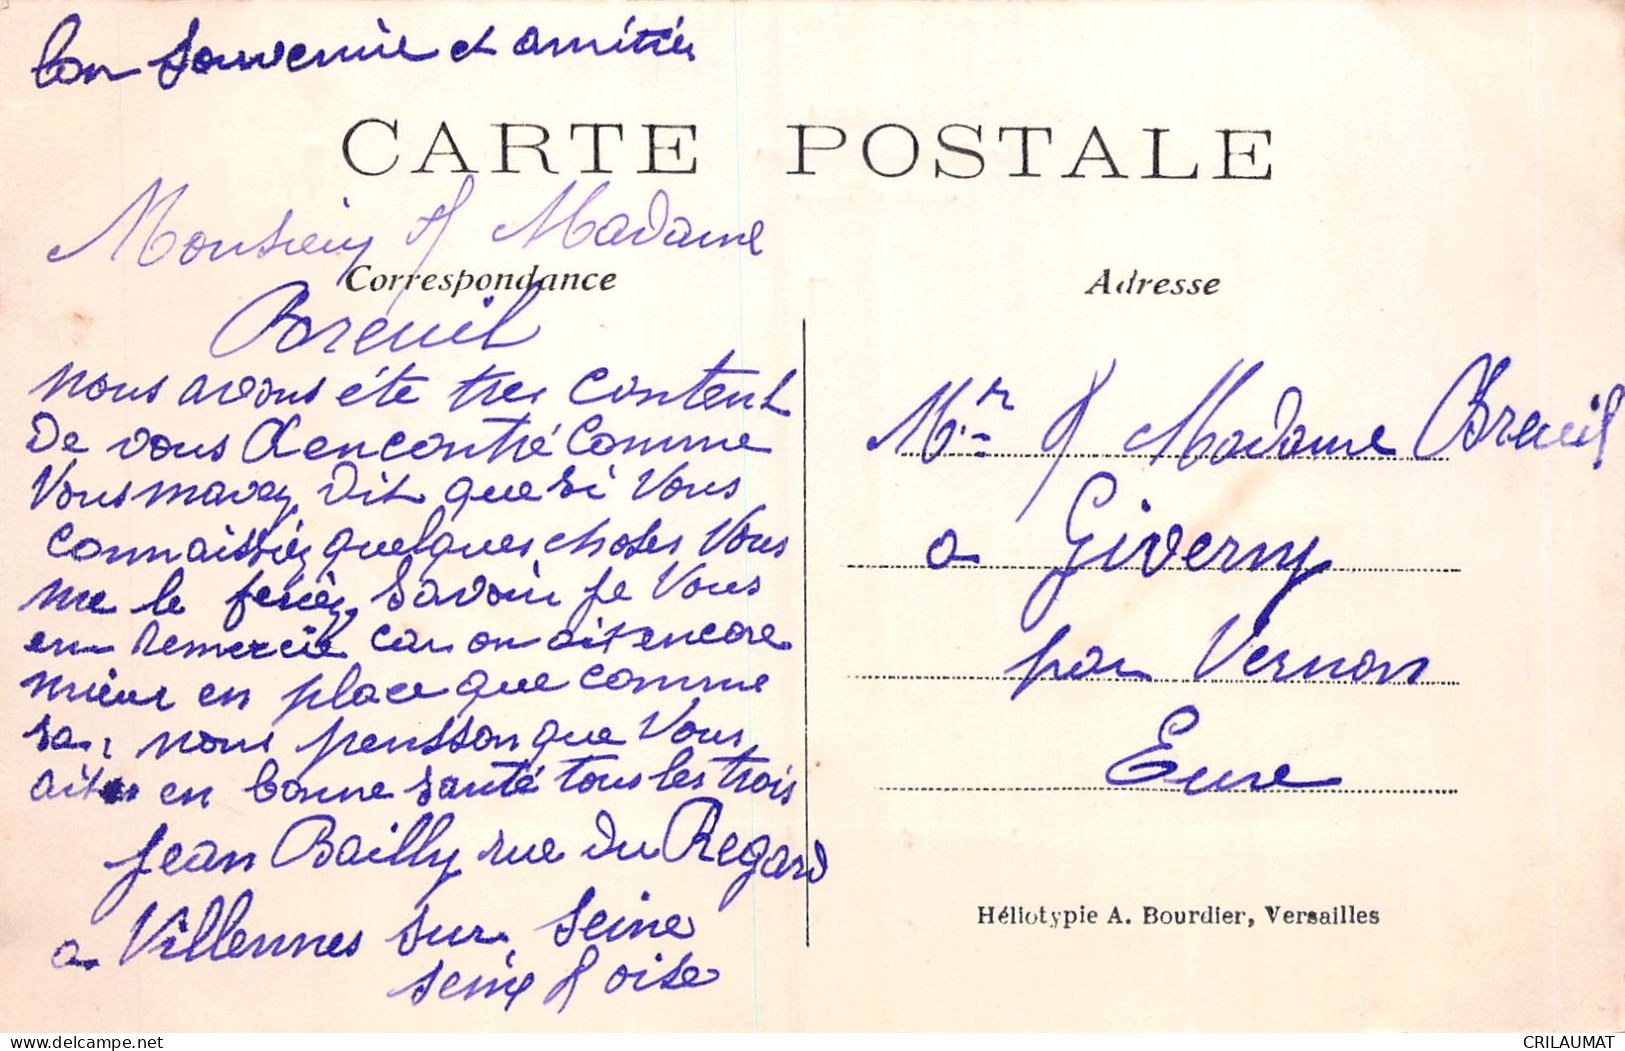 bon souvenir et amitiés
CARTE POSTALE
Monsieur et Madame
Correspondance
Breuil
nous avons éte tres content
De vous Rencontré comme
Vous mavez Dit que si Vous
connaissiez quelques choses Vous
me le feriez savoir je Vous
en remercie car on ait encore
mieux en place que comme
sa, nous pensson que Vous
aites en bonne santé tous les trois
Jean Bailly rue Du Regard
a Villennes sur Seine
seine et oise
Adresse
Mr. et Madame Breuil
a Giverny
par Vernon
Eure
Héliotypie A. Bourdier, Versailles
delcampe.net
CRILAUMAT